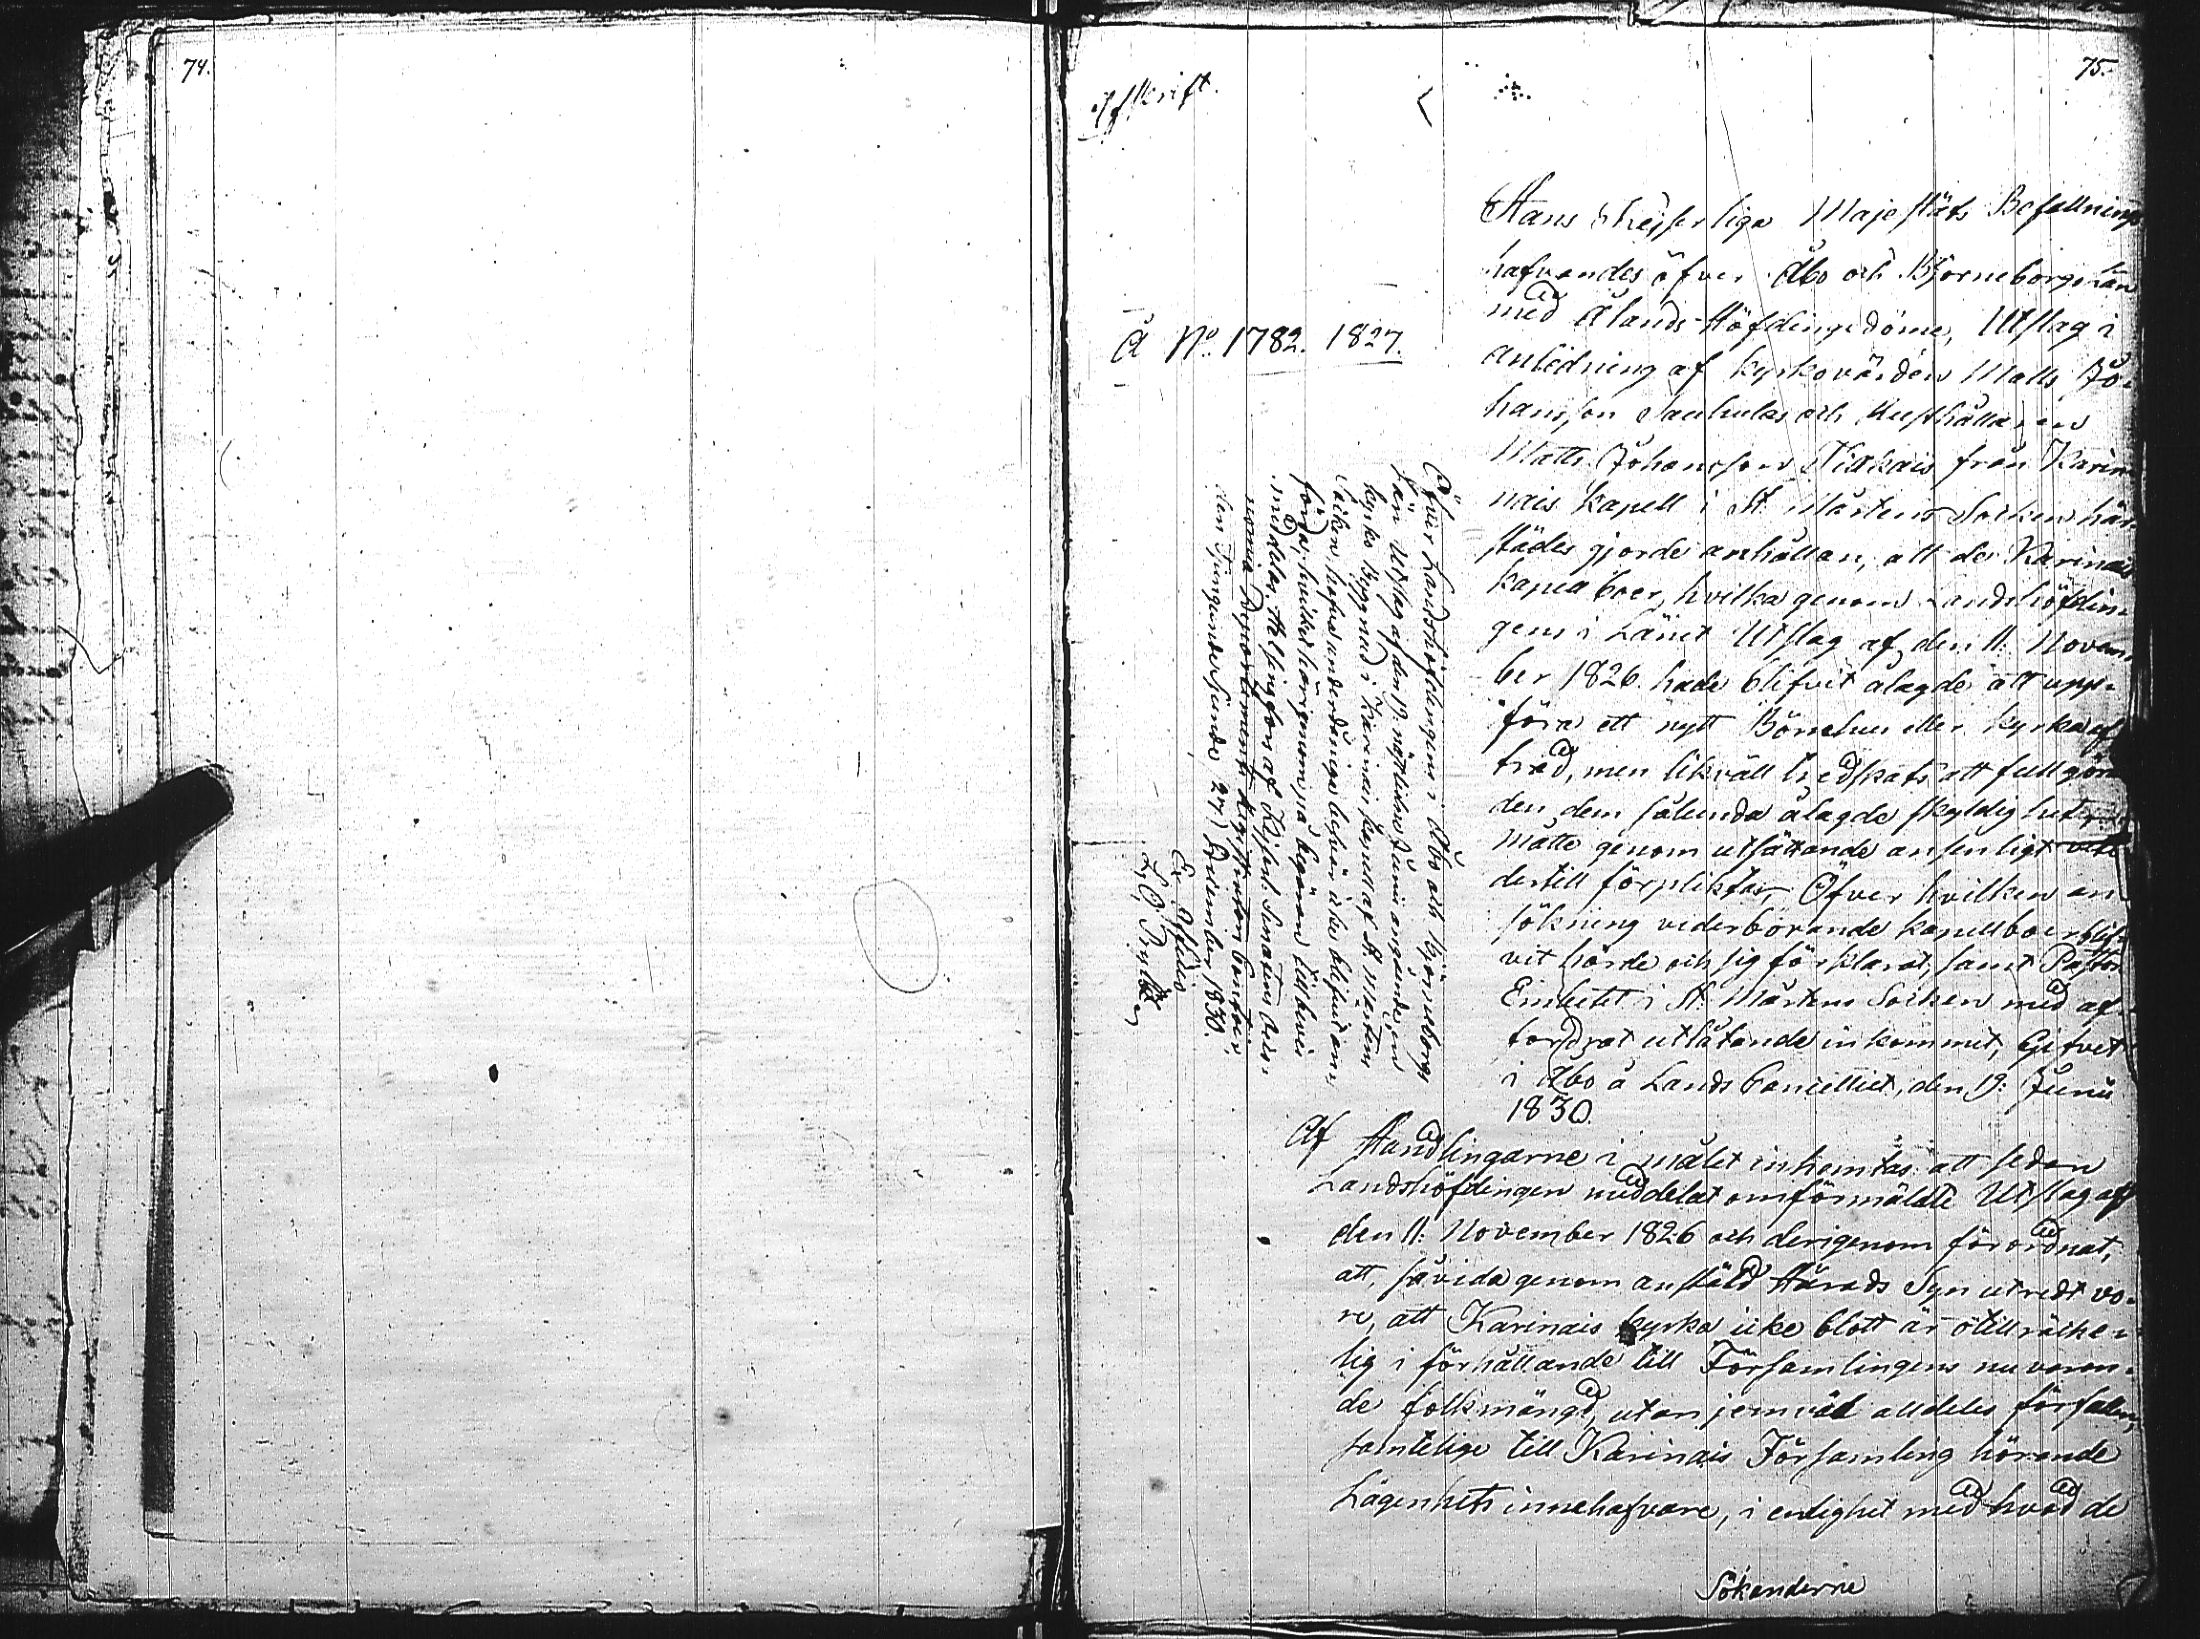 74.
75.
Afskrift.
Å No. 1782. 1827.
Hans Kejserliga Majestäts Befallnings
hafvandes öfver Åbo och Björneborgs Län
med Ålands Höfdingedöme, Utslag i
anledning af kyrkovärden Matts Jo-
hansson Sauhulas och Rusthållaren
Matts Johansson från Kari-
nais kapell i St. Mårtens Socken här-
städes gjorde anhållan, att de Karinais
kapellboer, hvilka genom Landshöfdin-
gens i Länet Utslag af den 11. Novem-
ber 1826. hade blifvit ålagde att upp-
föra ett nytt Bönehus eller kyrka af
träd, men likväll tredskats att fullgöra
den dem sålunda ålagde skyldighet,
måtte genom utsättande ansenligt vite
dertill förpliktas, Öfver hvilken an-
sökning vederbörande kapellboer blif-
vit hörde och sig förklarat, samt Pastors
Embetet i St. Mårtens Socken med af-
fordrat utlåtande inkommit, Gifvet
i Åbo å Lands Cancelliet, den 19. Junii
1830.
Af Handlingarne i målet inhemtas att sedan
Landshöfdingen meddelat omförmälde Utslag af
den 11. November 1826 och derigenom förordnat,
att, såvida genom anstäld Härads Syn utredt vo-
re, att Karinais kyrka icke blott är otillräcke-
lig i förhållande till Församlingens nuvaran-
de folkmängd, utan jemväl alldeles förfallen,
samtelige till Karinais Församling hörande
Lägenhets innehafvare, i enlighet med hvad de
Sökanderne
Öfver Landshöfdingens i Åbo och Björneborgs
Län Utslag af den 19. nästledne Junii angående en
kyrko Byggnad i Karinais kapell af St. Mårtens
Socken, hafva underdåniga besvär icke blifvit an-
förda; hvilket härigenom på begäran till bevis
meddelas. Helsingfors af Kejserl. Senatens Oeco-
nomie Departements Registrators Contoir,
den Tjugondesjunde 27) December 1830.
Ex Officio